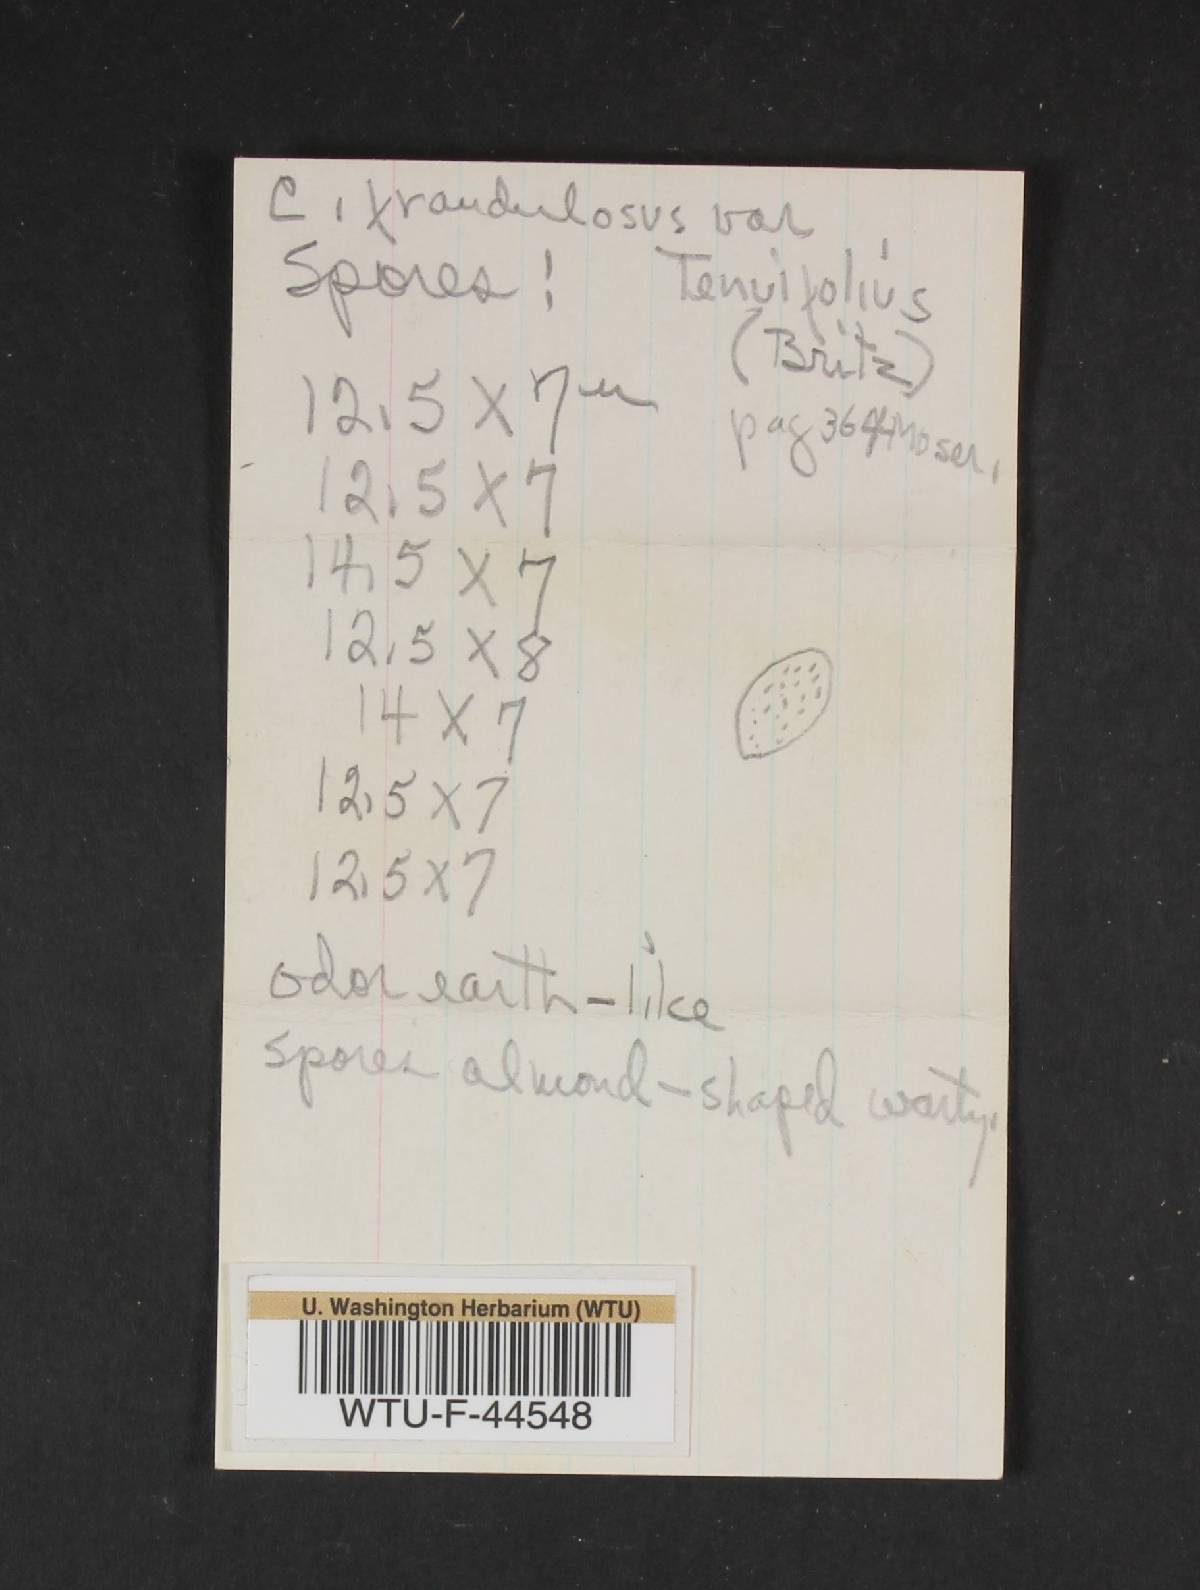 C. fraudulosus var
Spores! Tenuifolius
(Britz)
12.5 X 7 u
pag 364 Moser.
12.5 X 7
14.5 X 7
12.5 X 8
14 X 7
12.5 X 7
12.5 X 7
odor earth-like
spores almond-shaped warty.
U. Washington Herbarium (WTU)
WTU-F-44548